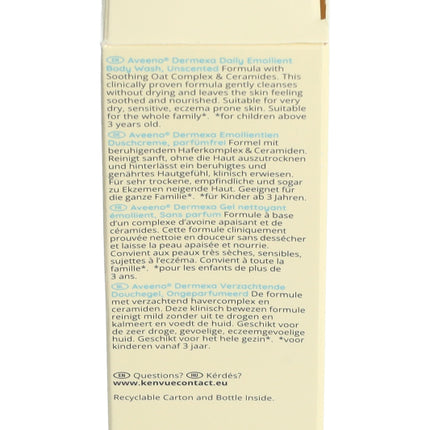 EN Aveeno® Dermexa Daily Emollient
Body Wash, Unscented Formula with
Soothing Oat Complex & Ceramides. This
clinically proven formula gently cleanses
without drying and leaves the skin feeling
soothed and nourished. Suitable for very
dry, sensitive, eczema prone skin. Suitable
for the whole family*. *for children above
3 years old.
DE Aveeno® Dermexa Emollientien
Duschcreme, parfümfrei Formel mit
beruhigendem Haferkomplex & Ceramiden.
Reinigt sanft, ohne die Haut auszutrocknen
und hinterlässt ein beruhigtes und
genährtes Hautgefühl, klinisch erwiesen.
Für sehr trockene, empfindliche und sogar
zu Ekzemen neigende Haut. Geeignet für
die ganze Familie*. *für Kinder ab 3 Jahren.
FR Aveeno® Dermexa Gel nettoyant
émollient, Sans parfum Formule à base
d'un complexe d'avoine apaisant et de
céramides. Cette formule cliniquement
prouvée nettoie en douceur sans dessécher
et laisse la peau apaisée et nourrie.
Convient aux peaux très sèches, sensibles,
sujettes à l'eczéma. Convient à toute la
famille*. *pour les enfants de plus de
3 ans.
NL Aveeno® Dermexa Verzachtende
Douchegel, Ongeparfumeerd De formule
met verzachtend havercomplex en
ceramiden. Deze klinisch bewezen formule
reinigt mild zonder uit te drogen en
kalmeert en voedt de huid. Geschikt voor
de zeer droge, gevoelige, eczeemgevoelige
huid. Geschikt voor het hele gezin*. *voor
kinderen vanaf 3 jaar.
EN Questions? HU Kérdés?
www.kenvuecontact.eu
Recyclable Carton and Bottle Inside.